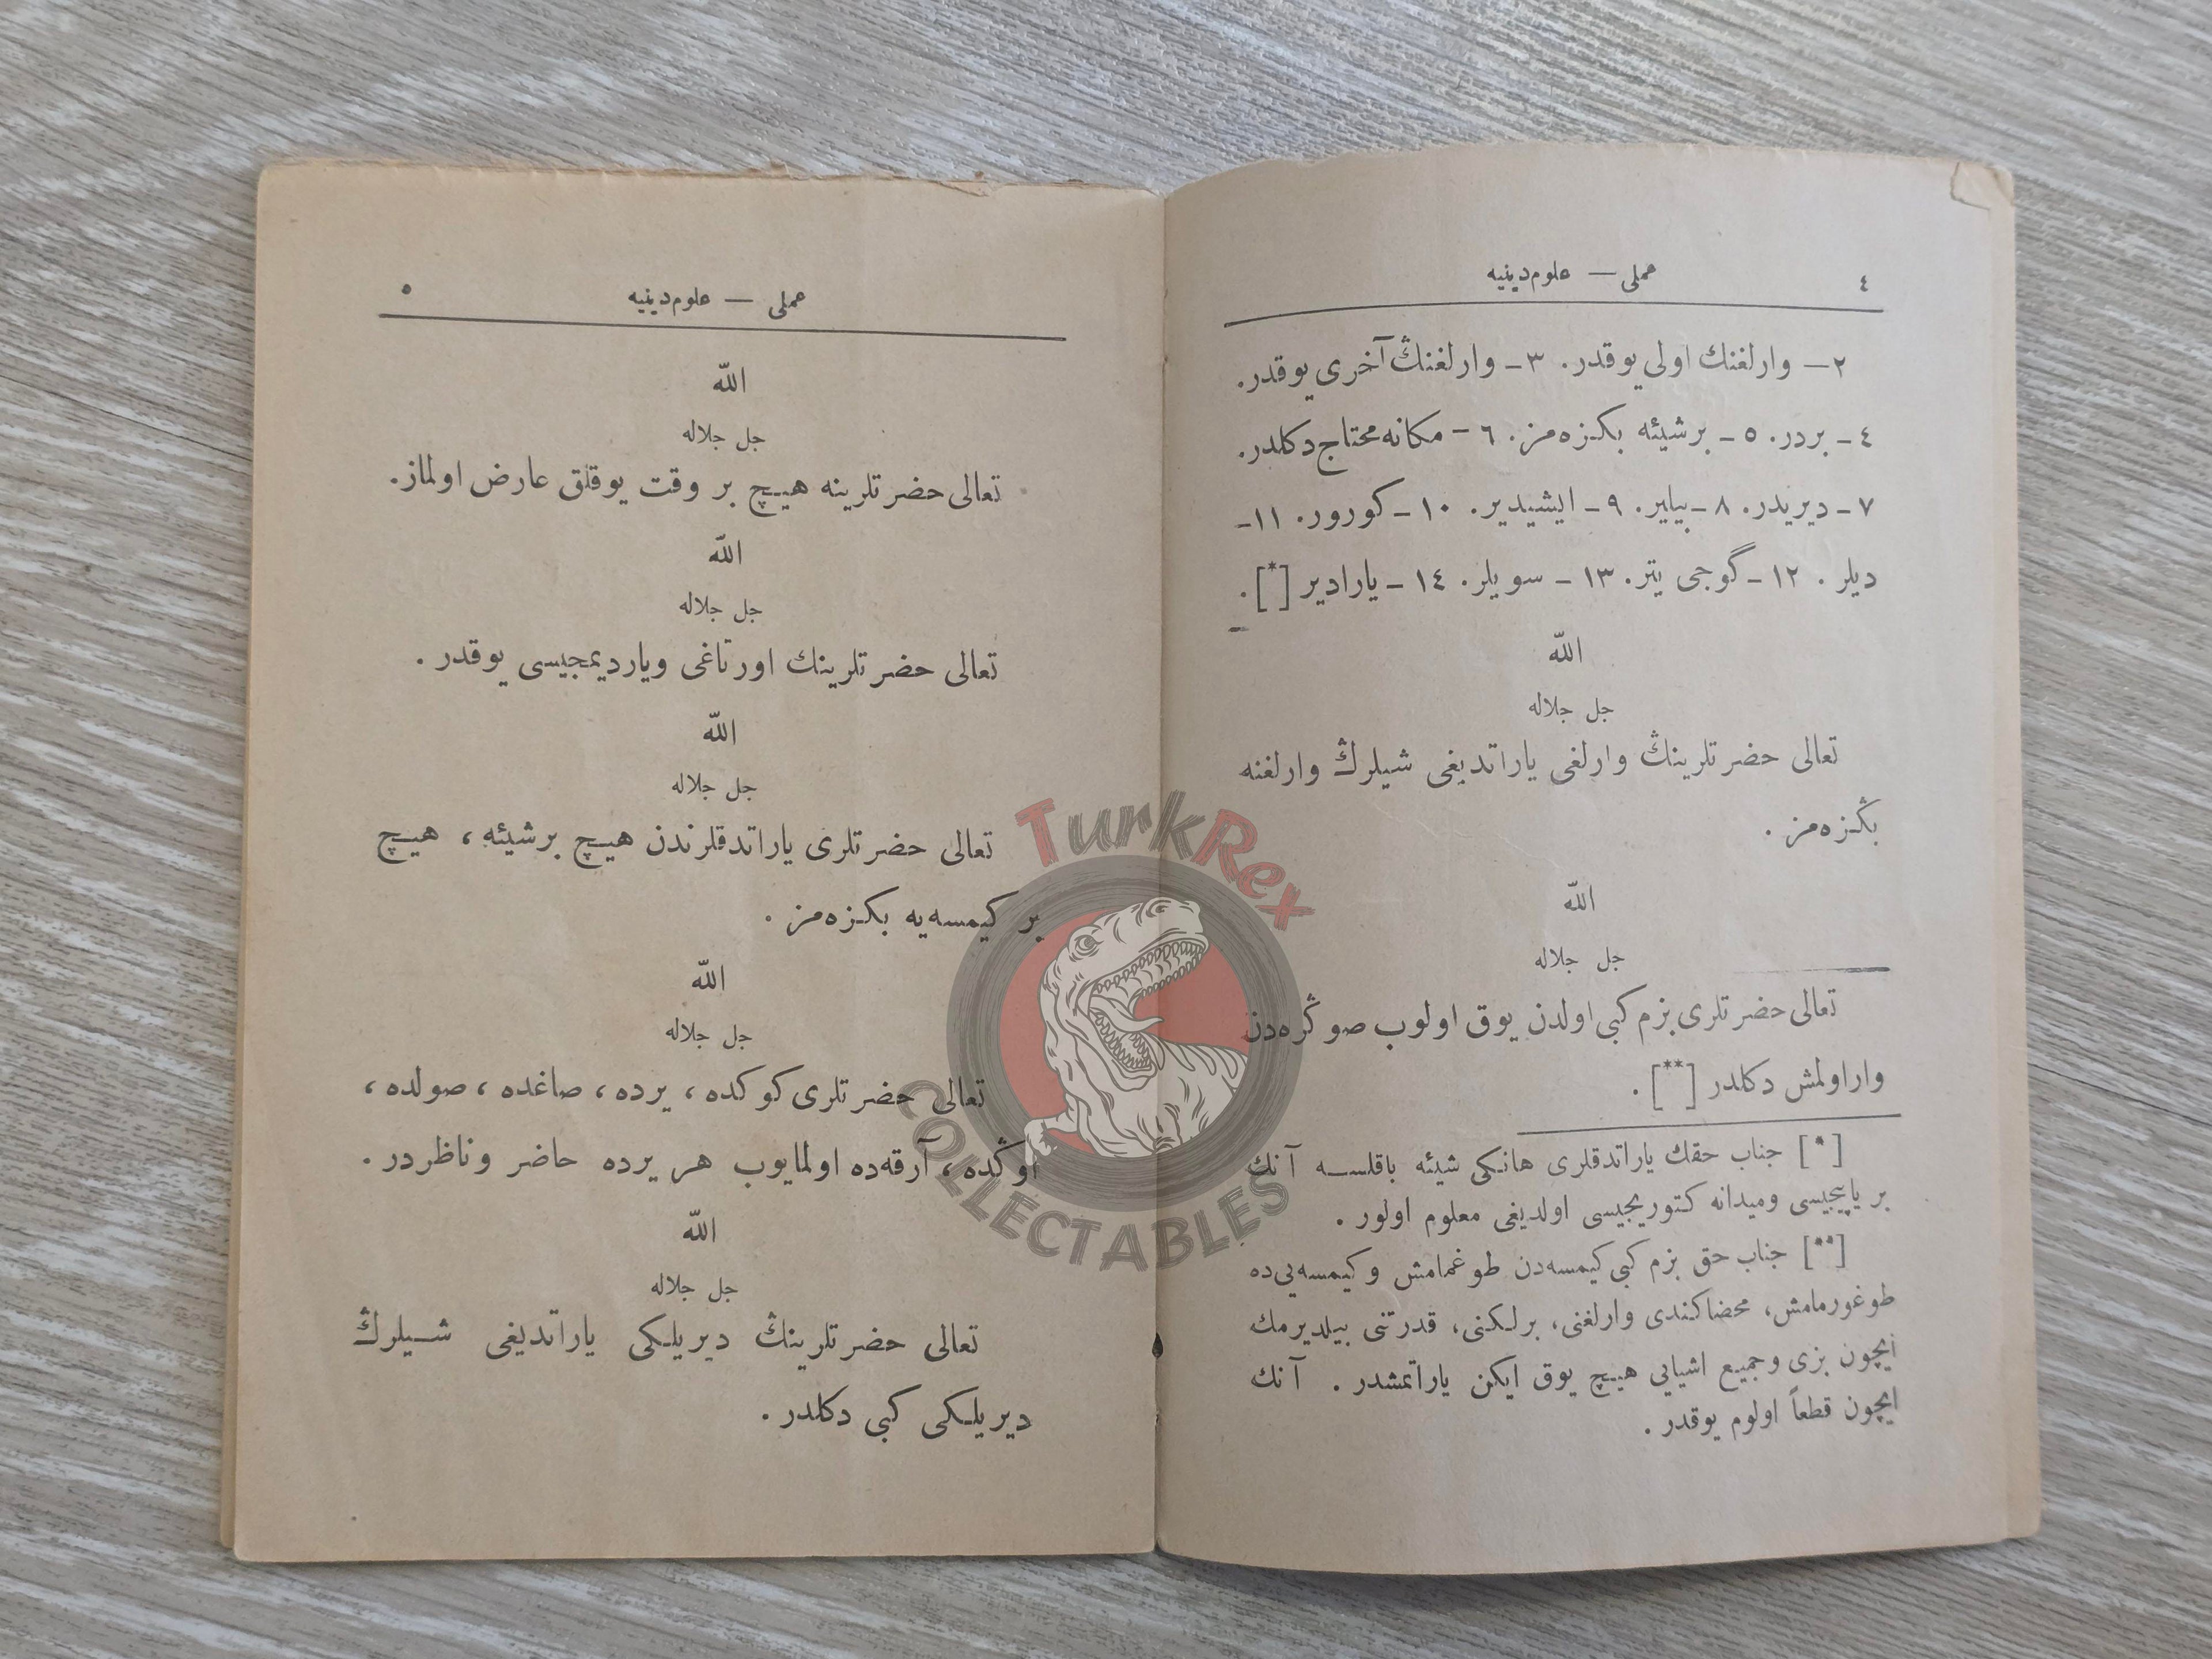 ٤
عملی — علوم دینیه
٢ — وارلغنك اولی یوقدر. ٣ — وارلغنڭ آخری یوقدر.
٤ — بردر. ٥ — برشیئه بكـزه‌مز. ٦ — مكانه محتاج دكلدر.
٧ — دیریدر. ٨ — بیلیر. ٩ — ایشیدیر. ١٠ — كورور. ١١ —
دیلر. ١٢ — گوجی یتر. ١٣ — سویلر. ١٤ — یارادیر [*].
الله
جل جلاله
تعالی حضرتلرینڭ وارلغی یاراتدیغی شیلرڭ وارلغنه
بڭـزه‌مز.
الله
جل جلاله
تعالی حضرتلری بزم كبی اولدن یوق اولوب صوڭره‌دن
وار اولمش دكلدر [**].
[*] جناب حقك یاراتدقلری هانكی شیئه باقلسه آنك
بر یاپیجیسی ومیدانه كتوریجیسی اولدیغی معلوم اولور.
[**] جناب حق بزم كبی كیمسه‌دن طوغمامش وكیمسه‌یی‌ده
طوغورمامش، محضا كندی وارلغنی، برلكنی، قدرتنی بیلدیرمك
ایچون بزی وجمیع اشیایی هیچ یوق ایكن یاراتمشدر. آنك
ایچون قطعاً اولوم یوقدر.
٥
عملی — علوم دینیه
الله
جل جلاله
تعالی حضرتلرینه هیچ بر وقت یوقلق عارض اولماز.
الله
جل جلاله
تعالی حضرتلرینك اورتاغی ویاردیمجیسی یوقدر.
الله
جل جلاله
تعالی حضرتلری یاراتدقلرندن هیچ برشیئه، هیچ
بر كیمسه‌یه بكـزه‌مز.
الله
جل جلاله
تعالی حضرتلری كوكده، یرده، صاغده، صولده،
اوڭده، آرقه‌ده اولمایوب هر یرده حاضر وناظردر.
الله
جل جلاله
تعالی حضرتلرینڭ دیریلكی یاراتدیغی شیلرڭ
دیریلكی كبی دكلدر.
TurkRex
COLLECTABLES